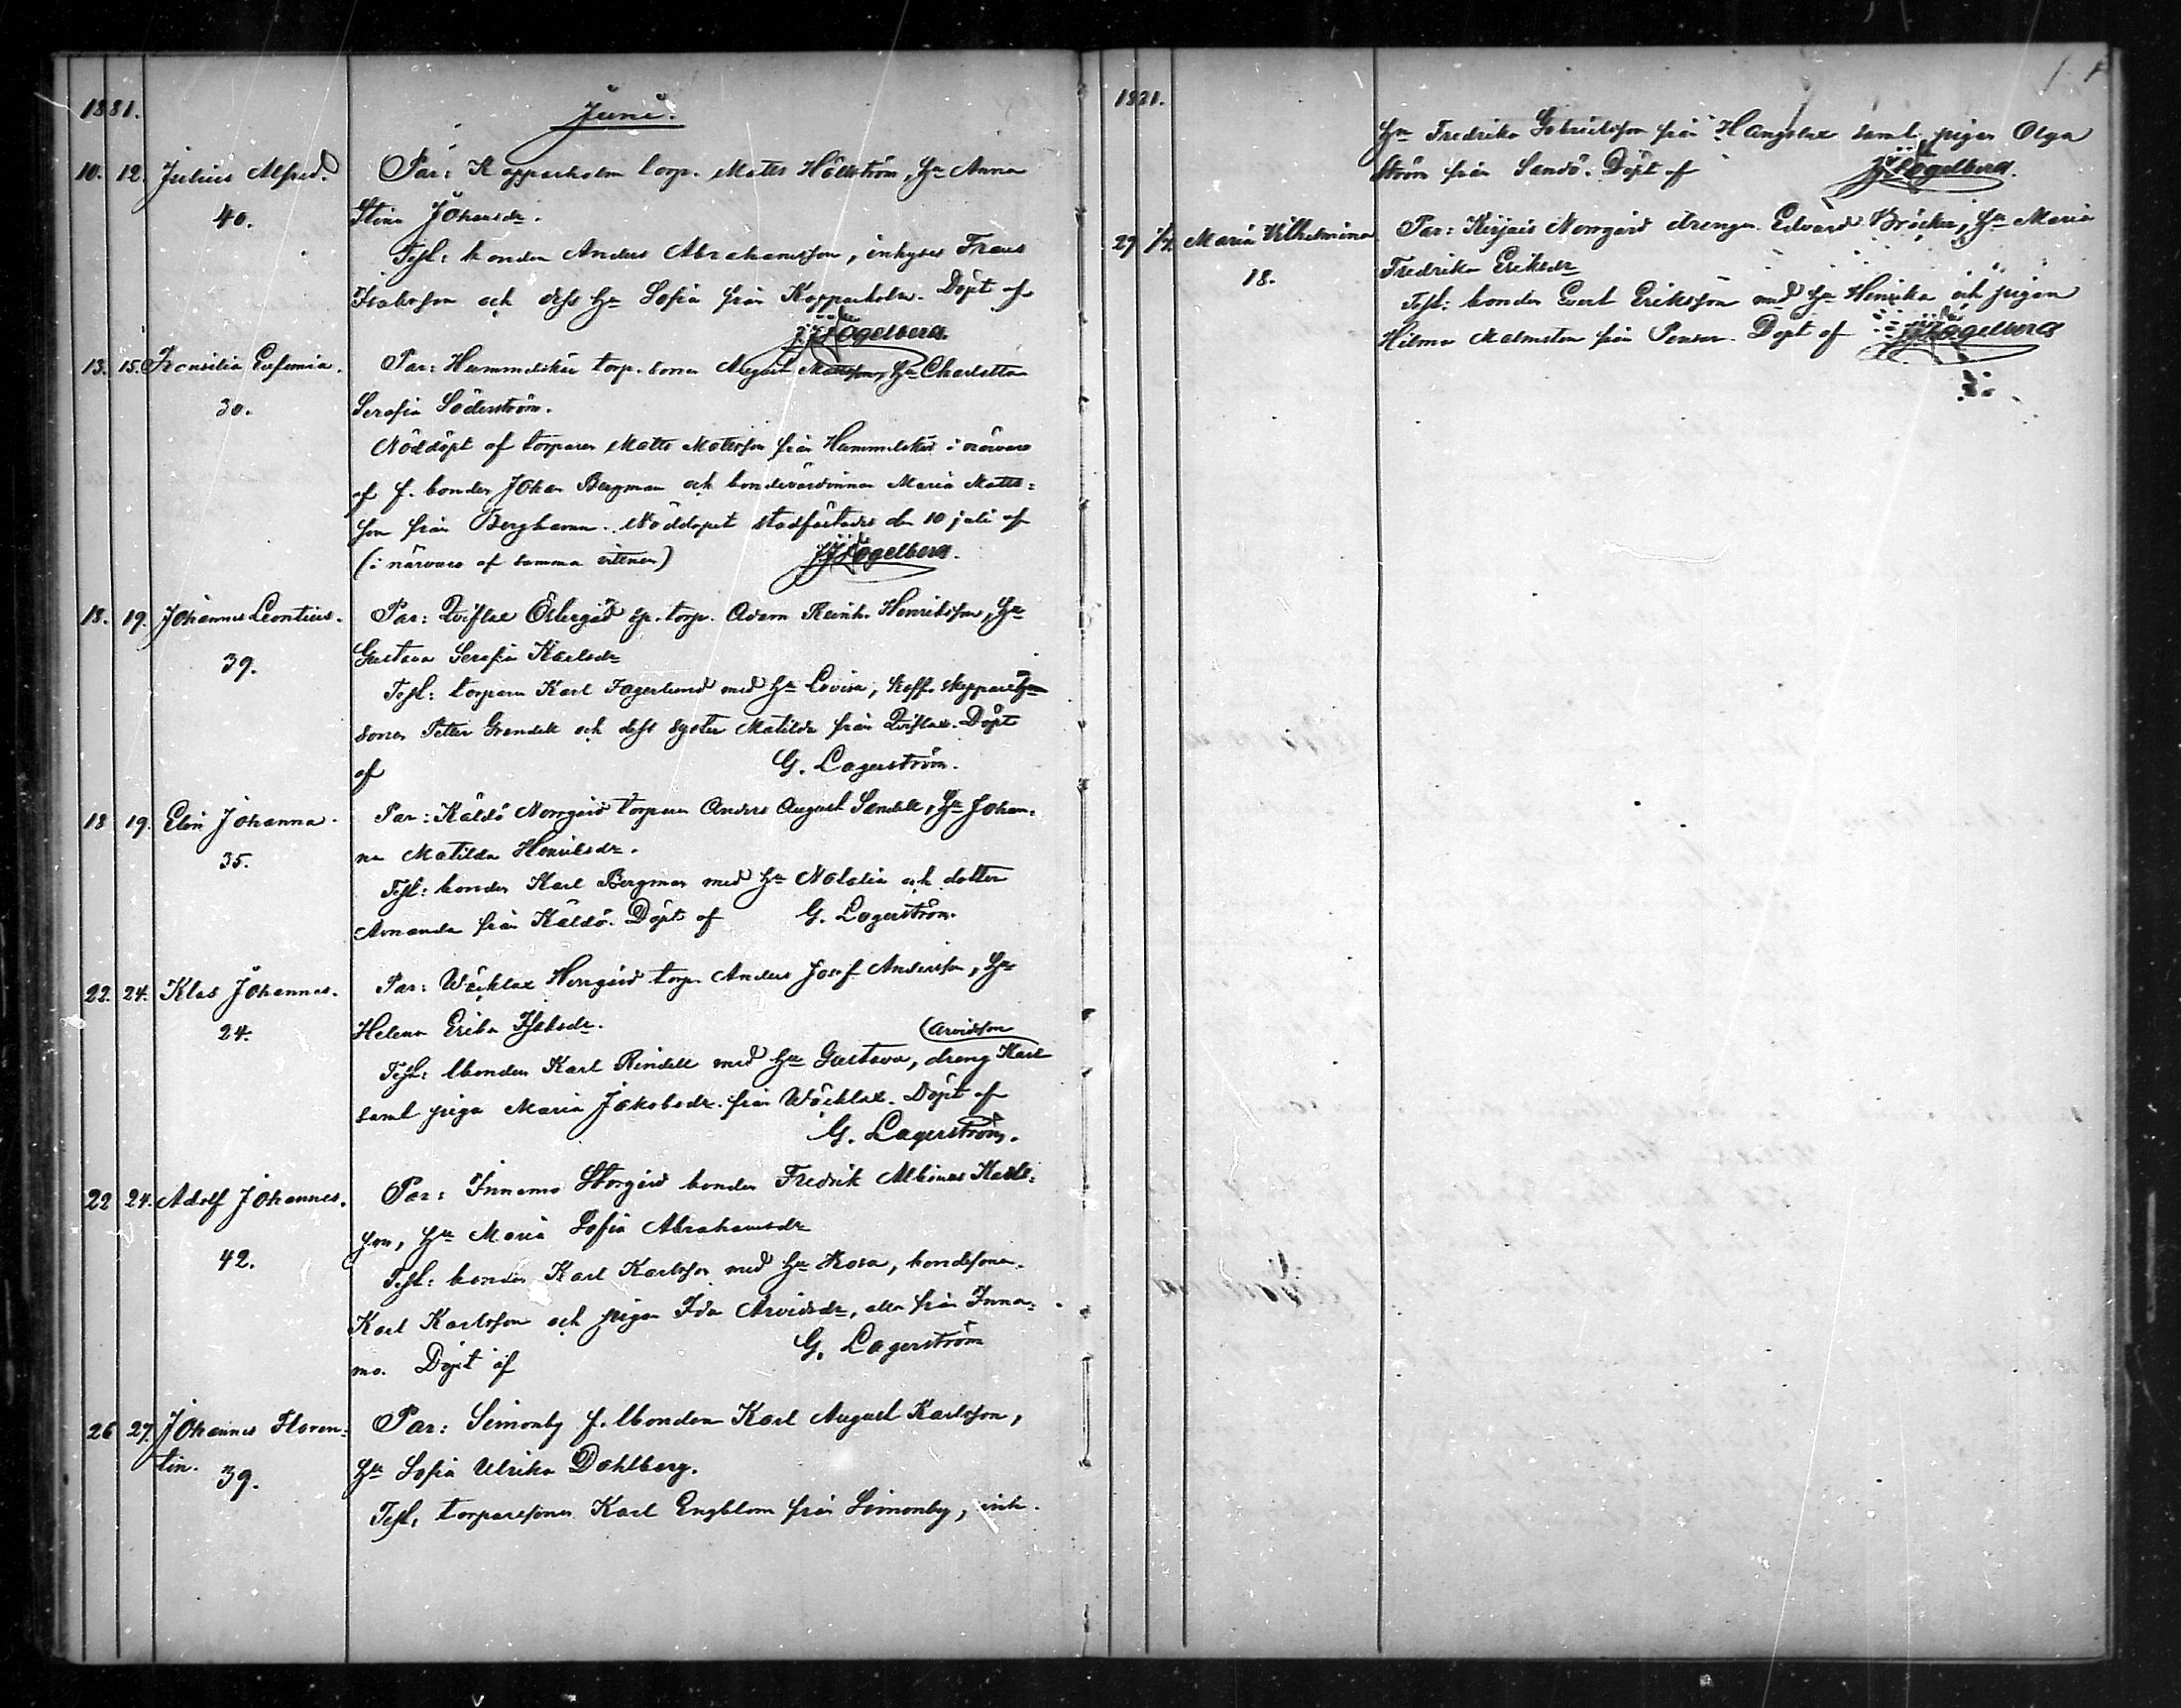 1881.
Juni.
10. 12. Julius Alfred. Par: Kopparholm torp. Matts Hällström, Hu Anna
40. Stina Johansdr.
Test: bonden Anders Abrahamsson, inhyses Frans
Isaksson och dess Hu Sofia från Kopparholm. Döpt af
J J Fogelberg.
13. 15. Eufemia. Par: Hummelskär torp. sonen August Mattsson, Hu Charlotta
30. Serafia Söderström.
Nöddöpt af torparen Matts Mattsson från Hummelskär i närvaro
af f. bonden Johan Bergman och bondevärdinnan Maria Matts=
son från Berghamn. Nöddopet stadfästades den 10 juli af
(i närvaro af samma vittnen) J J Fogelberg.
18. 19. Johannes Leontius. Par: Qviflax Östergård torp. Adam Reinh. Henriksson, Hu
39. Gustava Serafia Karlsdr
Test: torparen Karl Fagerlund med Hu Lovisa, skeppare
sonen Petter Grandell och dess syster Matilda från Qviflax. Döpt
af G. Lagerström.
18 19. Elin Johanna. Par: Käldö Norrgård torparen Anders August Sandell, Hu Johan-
35. na Matilda Henriksdr.
Test: bonden Karl Bergman med Hu Natalia och dotter
Amanda från Käldö. Döpt af G. Lagerström.
22. 24. Klas Johannes. Par: Wäcklax Herrgård torp. Anders Josef Andersson, Hu
24. Helena Erika Isaksdr. (Arvidsson
Test: lbonden Karl Rindell med Hu Gustava, dreng Karl
samt piga Maria Jakobsdr. från Wäcklax. Döpt af
G. Lagerström.
22 24. Adolf Johannes. Par: Innamo Storgård bonden Fredrik Albinus Karls-
42. son, Hu Maria Sofia Abrahamsdr
Test: bonden Karl Karlsson med Hu Rosa, bondesonen
Karl Karlsson och pigan Ida Arvidsdr, alla från Inna=
mo. Döpt af G. Lagerström
26 27. Johannes Floren= Par: Simonby f. lbonden Karl August Karlsson,
tin. 39. Hu Sofia Ulrika Dahlberg.
Test: torparesonen Karl Engblom från Simonby, inh.
1881.
Hu Fredrika Gabrielsson från Hangslax samt pigan Olga
Ström från Sandö. Döpt af J J Fogelberg.
29 1/7. Maria Vilhelmina Par: Kirjais Norrgård drengen Edvard Bröcker, Hu Maria
18. Fredrika Eriksdr
Test: bonden Evert Eriksson med Hu Henrika och pigan
Hilma Malmsten från Pensar. Döpt af J J Fogelberg